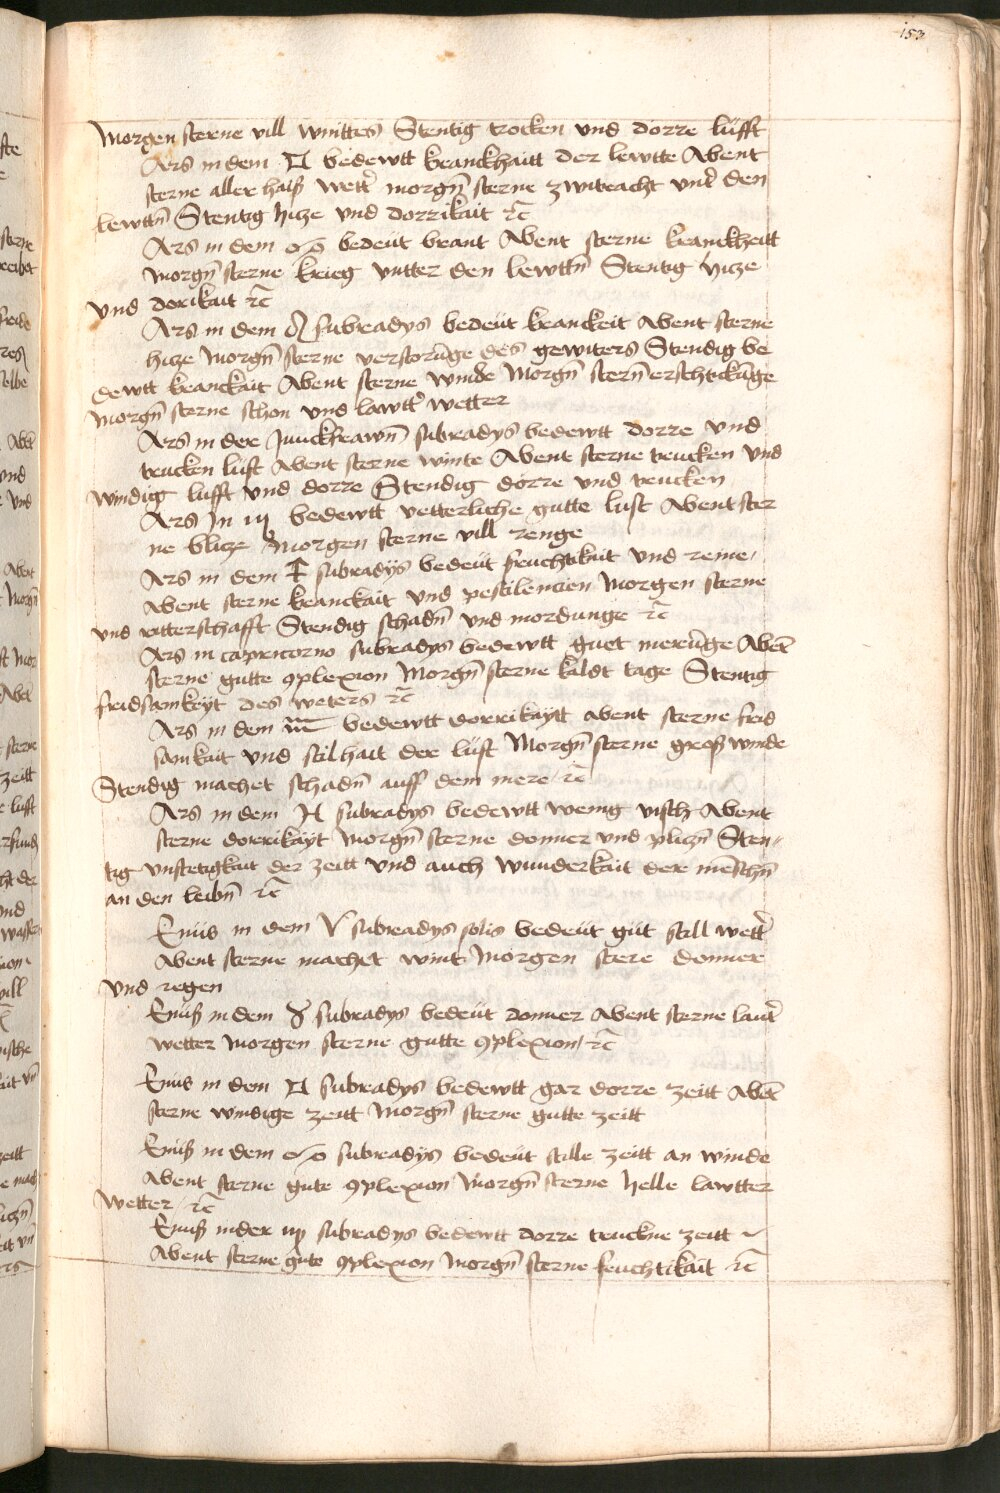 153
Morgen sterne vill winttes Stentig trocken vnd dorre lufft
Ars in dem ♊ bedewtt kranckhaitt der lewtte Abent
sterne aller haiß wetter morgn̄ sterne zwitracht vnt̄ den
lewttn̄ Stentig hicze vnd dorrikait ꝛc̄
Ars in dem ♋ bedeüt brant Abent sterne kranckheitt
Morgn̄ sterne krieg vntter den lewttn̄ Stentig hicze
vnd dorikait ꝛc̄
Ars in dem ♌ subradys bedeüt kranckeit Abent sterne
hicze Morgn̄ sterne verstorūge des gewiters Stendig be
dewtt kranckait Abent sterne winde Morgn̄ stern erschrickūge
Morgn̄ sterne schon vnd lawtt̄ wetter
Ars in der Junckfrawn̄ subradys bedewtt dorre vnd
trucken luft Abent sterne winte Abent sterne trucken vnd
windig lufft vnd dorre Stendig dorre vnd trucken
Ars Jn ♏ bedewtt vetterliche gutte luft Abent ster
ne blicze Morgen sterne vill renge
Ars in dem ♐ subradÿs bedeüt feuchtikait vnd reine
Abent sterne kranckait vnd pestilencien Morgen sterne
vnd ritterschafft Stendig schadn̄ vnd mordunge ꝛc̄
Ars in capricorno subradys bedewtt guet merūge Abēt
sterne gutte ꝯplexion Morgn̄ sterne kaldt tage Stentig
fridsamkeÿt des weters ꝛc̄
Ars in dem ♒ bedewtt dorrikaÿtt abent sterne frid
samkait vnd stilhait der lüft Morgn̄ sterne groß winde
Stendig machet schadn̄ auff dem mere ꝛc̄
Ars in dem ♓ subradys bedewtt wenig visch Abent
sterne dorrikaÿt Morgn̄ sterne donner vnd pliczn̄ Sten
tig vnstetigkait der zeitt vnd auch wunderkait der mēschn̄
an den leibn̄ ꝛc̄
Enüs in dem ♈ subradys solis bedeüt güt still wett̄
Abent sterne machet wint Morgen stere donner
vnd regen
Enüß in dem ♉ subradys bedeüt donner Abent sterne laut̄
wetter Morgen sterne gutte ꝯplexion ꝛc̄
Enüs in dem ♊ subradys bedewtt gar dorre zeitt Abēt
sterne windige zeitt Morgn̄ sterne gutte zeitt
Enüß in dem ♋ subradÿs bedeüt stille zeitt an winde
Abent sterne gute ꝯplexion Morgn̄ sterne helle lawtter
wetter ꝛc̄
Enüß in der ♍ subradys bedewtt dorre truckne zeitt
Abent sterne gute ꝯplexion Morgn̄ sterne feuchtikait ꝛc̄